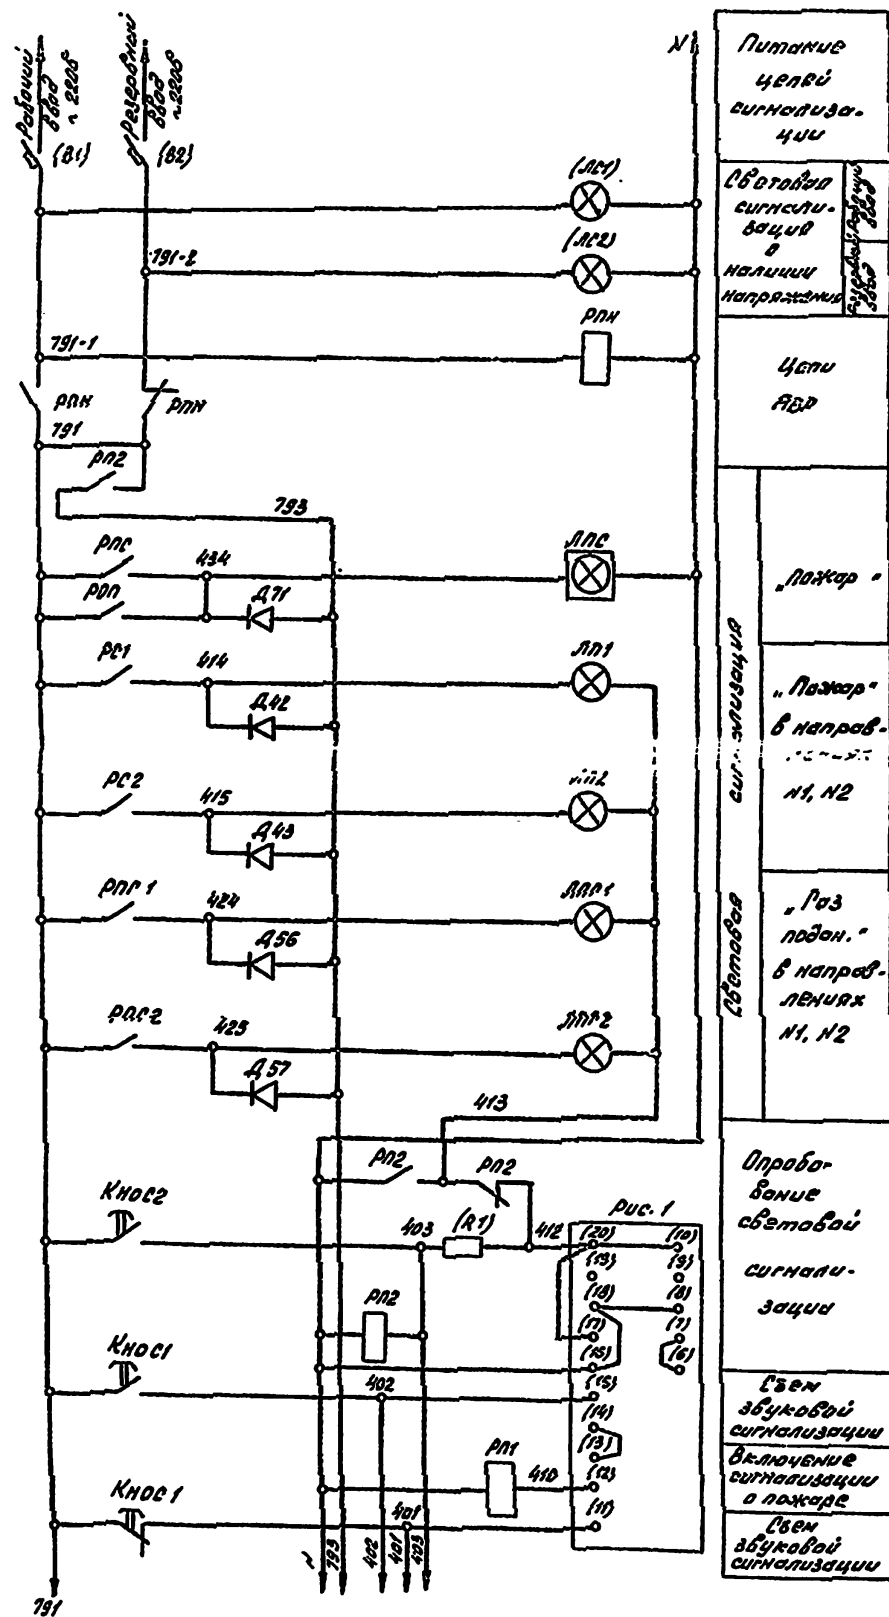 Рабочий
ввод
~220в
Резервный
ввод
~220в
(В1)
(В2)
N
(ЛС1)
791-2
(ЛС2)
РПН
791-1
РПН
РПН
791
РП2
793
РПС
434
ЛПС
РОП
Д71
РС1
414
ЛП1
Д42
РС2
415
ЛП2
Д43
РПГ1
424
ЛПГ1
Д56
425
ЛПГ2
Д57
413
РП2
РП2
КНОС2
403
(R1)
412
Рис. 1
(20)
(10)
(19)
(9)
(18)
(8)
(17)
(7)
(6)
РП2
КНОС1
402
(15)
(14)
(13)
РП1
410
(12)
КНОС1
401
(11)
N
793
402
401
403
791
Питание
цепей
сигнализа-
ции
Световая
сигнали-
зация
о
наличии
напряжения
Рабочий
ввод
Резервный
ввод
Цепи
АВР
Световая сигнализация
„Пожар"
„Пожар"
в направ-
N1, N2
„Газ
подан."
в направ-
лениях
N1, N2
Опробо-
вание
световой
сигнали-
зации
Съем
звуковой
сигнализации
Включение
сигнализации
о пожаре
Съем
звуковой
сигнализации